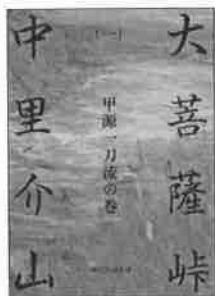 大菩薩峠
(一)
甲源一刀流の巻
中里介山